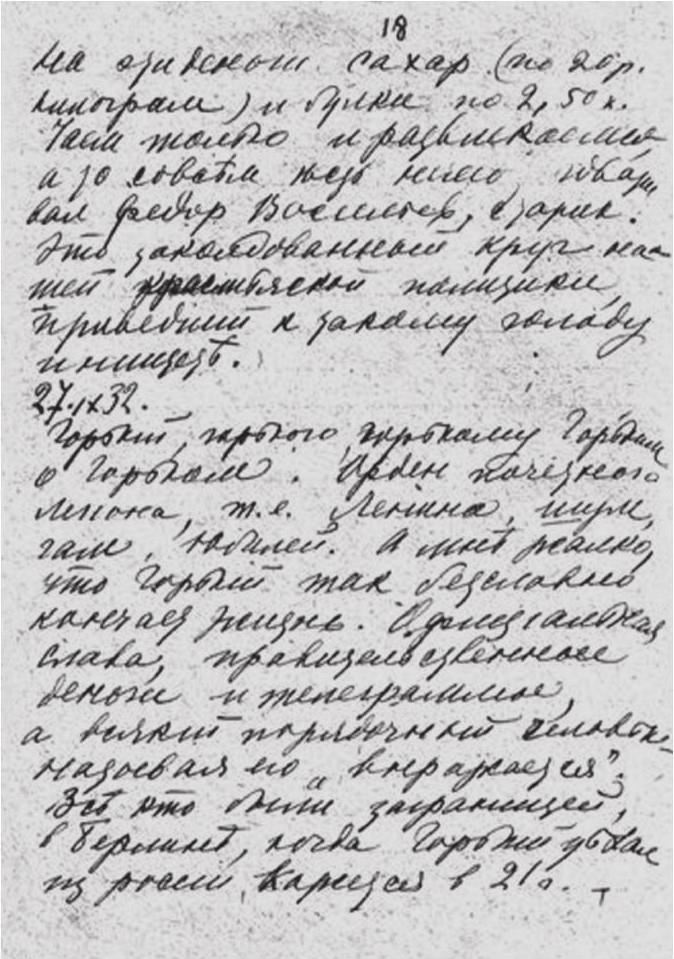 18
на эти деньги сахар (по 20 р.
килограм) и булки по 2,50 к.
Чаем только и развлекаемся
а то совсѣм ѣсть нечего, говари
вал Федор Васильев, старик.
Это заколдованный круг на-
шей крестьянской политики,
приведший к такому голоду
и нищетѣ.
27.IX 32.
Горький, горького, горькому Горьким
о Горьком. Орден почетного
Ленина, т.е. Ленина, шум,
гам, юбилей. А мнѣ жалко,
что Горький так безславно
кончает жизнь. Официальная
слава, правительственные
деньги и телеграммы,
а всякий порядочный человѣк,
называя его „выражается".
Всѣ кто были заграницей,
в Берлинѣ, когда Горький уѣхал
из россии, кажется в 21 г. –